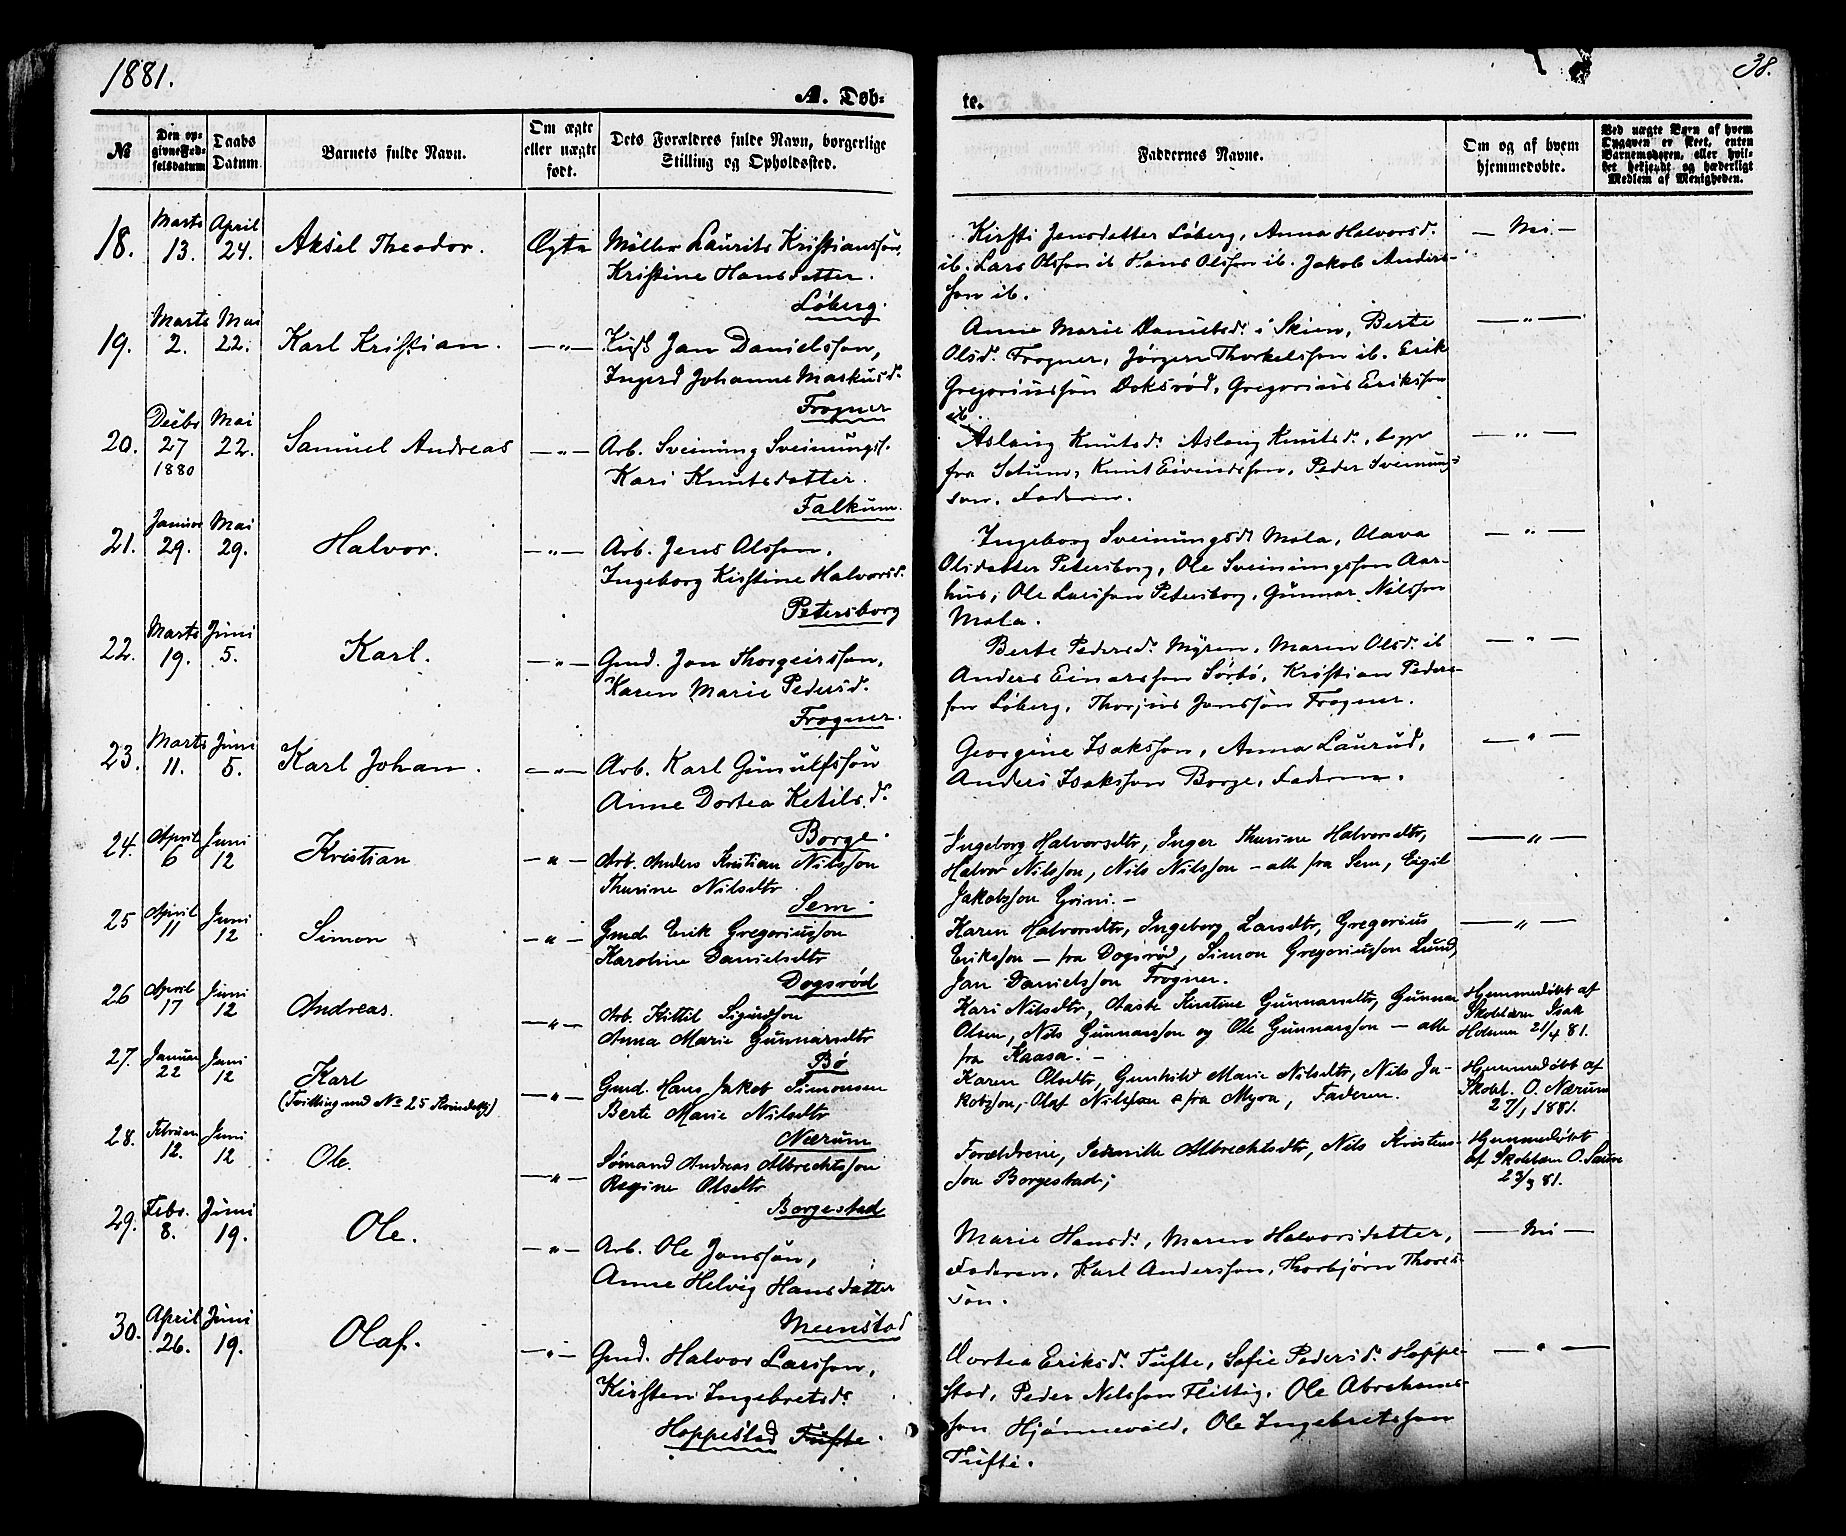 1881.
38.
A. Døb-
te.
№
Den op-
givne Fød-
selsdatum
Daabs
Datum.
Barnets fulde Navn.
Om ægte
eller uægte
født.
Dets Forældres fulde Navn, borgerlige
Stilling og Opholdssted.
Faddernes Navne.
Om og af hvem
hjemmedøbte.
Ved uægte Barn af hvem
Opgaven er skeet, enten
Barnemoderen, eller hvil-
ket bekjendt og hæderligt
Medlem af Menigheden.
18.
Marts
13.
April
24.
Aksel Theodor.
Ægte
Møller Laurits Kristianssøn,
Kristine Hansdatter.
Løberg.
Kirsti Jensdatter Løberg, Anna Halvorsd.
ib. Lars Olsson ib. Hans Olsson ib. Jakob Anders-
son ib.
— Nei. —
19.
Marts
2.
Mai
22.
Karl Kristian.
— „ —
Jan Danielsson,
Ingerd Johanne Markusd.
Frogner
Anne Marie Danielsd. i Skien, Berte
Olsd. Frogner, Jörgen Thorkelsson ib. Erik
Gregoriussön Doksrød, Gregorius Eriksson
ib.
— „ —
20.
Decbr
27
1880
Mai
22.
Samuel Andreas
— „ —
Arb. Sveinung Sveinungs.
Kari Knutsdatter.
Falkum.
Aslaug Knutsd. Aslaug Knutsd., begge
fra Solum, Knut Eivindsson, Peder Sveinung-
son. Faderen.
— „ —
21.
Januar
29.
Mai
29.
Halvor.
— „ —
Arb. Jens Olsson,
Ingeborg Kirstine Halvorsd.
Petersborg
Ingeborg Sveinungsd. Mæla, Olava
Olsdatter Petersborg, Ole Sveinungsson Aar-
hus, Ole Larsson Petersborg, Gunnar Nilsson
Mæla.
— „ —
22.
Marts
19.
Juni
5.
Karl.
— „ —
Gmd. Jon Thorgeirsson,
Karen Marie Pedersd.
Frogner.
Berte Pedersd. Myren, Maren Olsd. ib
Anders Einarsson Sørbø, Kristian Peders-
son Løberg, Thorjus Jonssön Frogner.
— „ —
23.
Marts
11.
Juni
5.
Karl Johan.
— „ —
Arb. Karl Gunulfssön
Anne Dortea Ketilsd.
Borge.
Georgine Isaksson, Anna Laurud,
Anders Isaksson Borge, Faderen.
— „ —
24.
April
6
Juni
12
Kristian
— „ —
Arb. Anders Kristian Nilsson
Thurine Nilsdtr
Sem.
Ingeborg Halvorsdtr, Inger Thurine Halvorsdtr,
Halvor Nilsson, Nils Nilsson – alle fra Sem, Eigil
Jakobsson Grini. –
— „ —
25
April
11
Juni
12
Simon
— „ —
Gmd Erik Gregoriusson
Karoline Danielsdtr
Dogsrød
Karen Halvorsdtr, Ingeborg Larsdtr, Gregorius
Eriksson – fra Dogsrød, Simon Gregoriusson Lund,
Jan Danielsson Frogner.
— „ —
26
April
17
Juni
12
Andreas.
— „ —
Arb. Kittil Sigurdsson
Anna Marie Gunnarsdtr
Bø
Kari Nilsdtr, Aaste Kirstine Gunnarsdtr, Gunnar
Olsen, Nils Gunnarsson og Ole Gunnarsson – alle
fra Kaasa. –
Hjemmedøbt af
Skolelærer Isak
Holmen 21/4 81.
27.
Januar
22
Juni
12
Karl
(Tvilling med No 25 Kvindekj)
— „ —
Gmd. Hans Jakob Simonsen
Berte Marie Nilsdtr
Nærum
Karen Olsdtr, Gunhild Marie Nilsdtr, Nils Ja-
kobsson, Olaf Nilsson fra Myra, Faderen.
Hjemmedøbt af
Skolel. O. Nærum
27/1 1881.
28.
Februar
12.
Juni
12
Ole.
— „ —
Sømand Andreas Albrechtsson
Regine Olsdtr
Borgestad
Forældrene, Pernille Albrechtsdtr, Nils Kristens-
son Borgestad;
Hjemmedøbt
af Skolelærer O.
23/3 81.
29.
Febr.
8.
Juni
19.
Ole.
— „ —
Arb. Ole Jonssön,
Anne Helvig Hansdatter
Meenstad
Marie Hansd., Maren Halvorsdatter,
Faderen, Karl Andersson, Thorbjørn Thores-
sön.
— Nei —
30.
April
26.
Juni
19.
Olaf.
— „ —
Gmd. Halvor Larsson,
Kirsten Ingebretsd.
Hoppestad Tufte.
Dortea Eriksd. Tufte, Sofie Pedersd. Hoppe-
stad, Peder Nilsson Flittig, Ole Abrahams-
son Hjønnevald, Ole Ingebretsson
Tufte.
— „ —